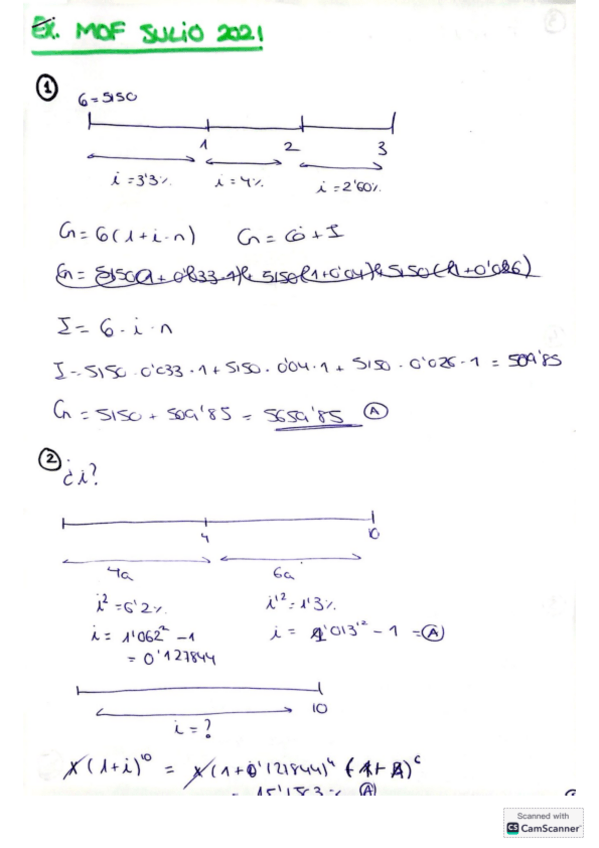 Ex. MOF JULIO 2021
①
C₀ = 5150
1 2 3
i = 3'3% i = 4% i = 2'60%
Cn = C₀(1+i·n) Cn = C₀ + I
Cn = 5150(1+0'033·1)+ 5150(1+0'04)+ 5150(1+0'026)
I = C₀ · i · n
I = 5150 · 0'033 · 1 + 5150 · 0'04 · 1 + 5150 · 0'026 · 1 = 509'85
Cn = 5150 + 509'85 = 5659'85 Ⓐ
②
¿i?
4 10
4a 6a
i² = 6'2% i¹² = 1'3%
i = 1'062² - 1 i = 1'013¹² - 1 = Ⓐ
= 0'127844
10
i = ?
X(1+i)¹⁰ = X(1+0'127844)⁴ (1+A)⁶
= 15'153% Ⓐ
Scanned with
CS CamScanner